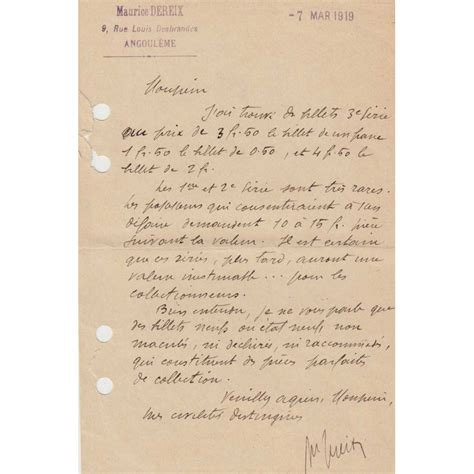 Maurice DEREIX
9, Rue Louis Desbrandes
ANGOULÊME
-7 MAR 1919
Monsieur
J'ai trouvé des billets 3e série
au prix de 3 fr. 50 le billet de un franc
1 fr. 50 le billet de 0.50, et 4 fr. 50 le
billet de 2 fr.
Les 1ère et 2e série sont très rares.
Les possesseurs qui consentiraient à s'en
défaire demandent 10 à 15 fr. pièce
suivant la valeur. Il est certain
que ces séries, plus tard, auront une
valeur inestimable... pour les
collectionneurs.
Bien entendu, je ne vous parle que
des billets neufs ou état neuf, non
maculés, ni déchirés, ni raccommodés,
qui constituent des pièces parfaites
de collection.
Veuillez agréer, Monsieur,
mes civilités distinguées